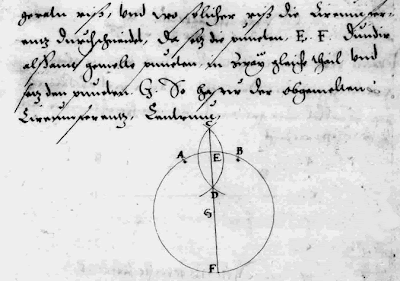 geraden riß, vnd wo solicher riß die Circumfer-
entz durchschneidet, da setz die puncten, E. F. Diuidir
gemelte puncten, in zway gleiche theil vnd
setz den puncten G. So hastu der obgemelten
Circumferentz, Centrum.
C
A E B
D
G
F